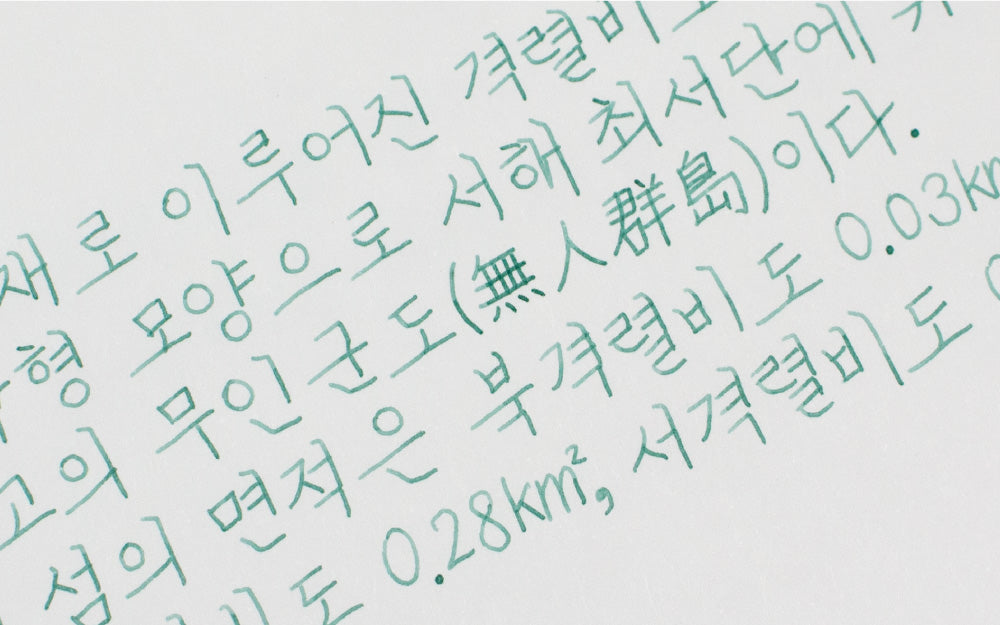 재로 이루어진 격렬비
형 모양으로 서해 최서단에
고의 무인군도(無人群島)이다.
섬의 면적은 북격렬비도 0.03km
비도 0.28km², 서격렬비도